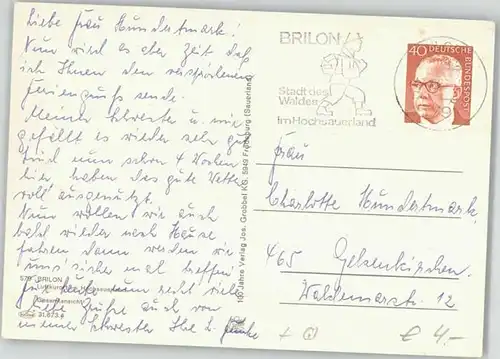 Liebe Frau Hundertmark!
Nun wird es aber Zeit daß
ich Ihnen den versprochenen
Feriengruß sende.
Meiner Schwester u. mir
gefällt es wieder sehr gut
Sind nun schon 4 Wochen
hier haben das gute Wetter
voll ausgenutzt.
Nun wollen wir auch
bald wieder nach Hause
fahren dann werden wir
uns sicher mal treffen.
Für heute nun recht viele
liebe Grüße auch von
meiner Schwester Ihre
579 BRILON
Gesamtansicht
100 Jahre Verlag Jos. Grobbel KG, 5949 Fredeburg (Sauerland)
BRILON
Stadt des
Waldes
im Hochsauerland
40 DEUTSCHE
BUNDESPOST
Frau
Charlotte Hundertmark
465 Gelsenkirchen.
Waldemarstr. 12
€ 4,-